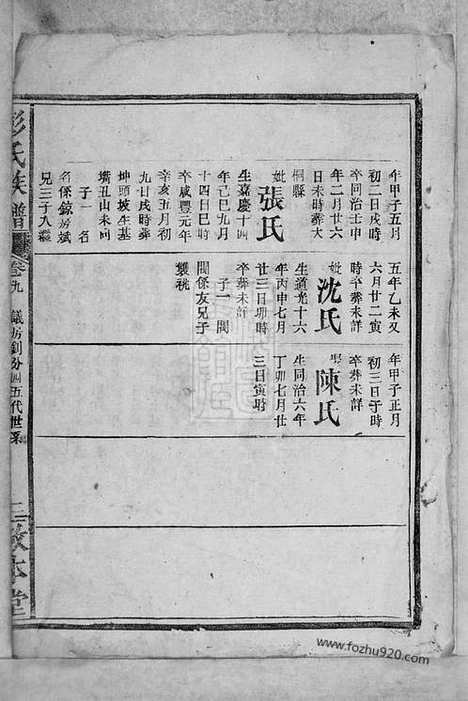 年甲子五月
初二日戌時
卒同治壬申
年二月廿六
日未時葬大
桐縣
妣張氏
生嘉慶十四
年己巳九月
十四日巳時
卒咸豐元年
辛亥五月初
九日戌時葬
坤頭坡生基
嘴丑山未向
子一名
名係錦房斌
兄三十入繼
五年乙未又
六月廿二寅
時卒葬未詳
妣沈氏
生道光十六
年丙申七月
廿三日卯時
卒葬未詳
子一閏
閏係友兄子
襲祧
年甲子正月
初三日子時
卒葬未詳
陳氏
生同治六年
丁卯七月廿
三日寅時
彭氏族譜
卷九
議房釗分四五代世系
三教本堂
www.fozhu920.com